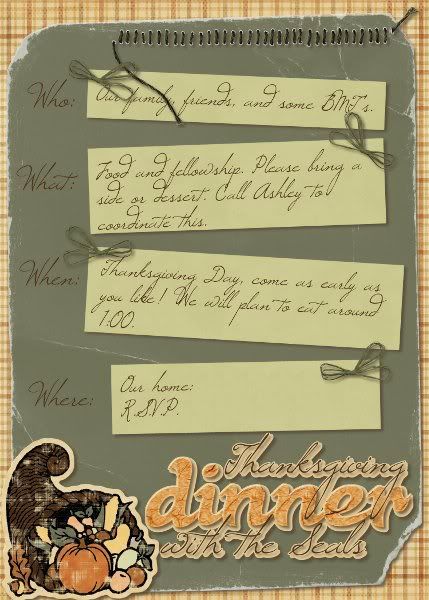 Who:
Our family, friends, and some BMT's.
What:
Food and fellowship. Please bring a
side or dessert. Call Ashley to
coordinate this.
When:
Thanksgiving Day, come as early as
you like! We will plan to eat around
1:00.
Where:
Our home:
R.S.V.P.
Thanksgiving
dinner
with the Seals